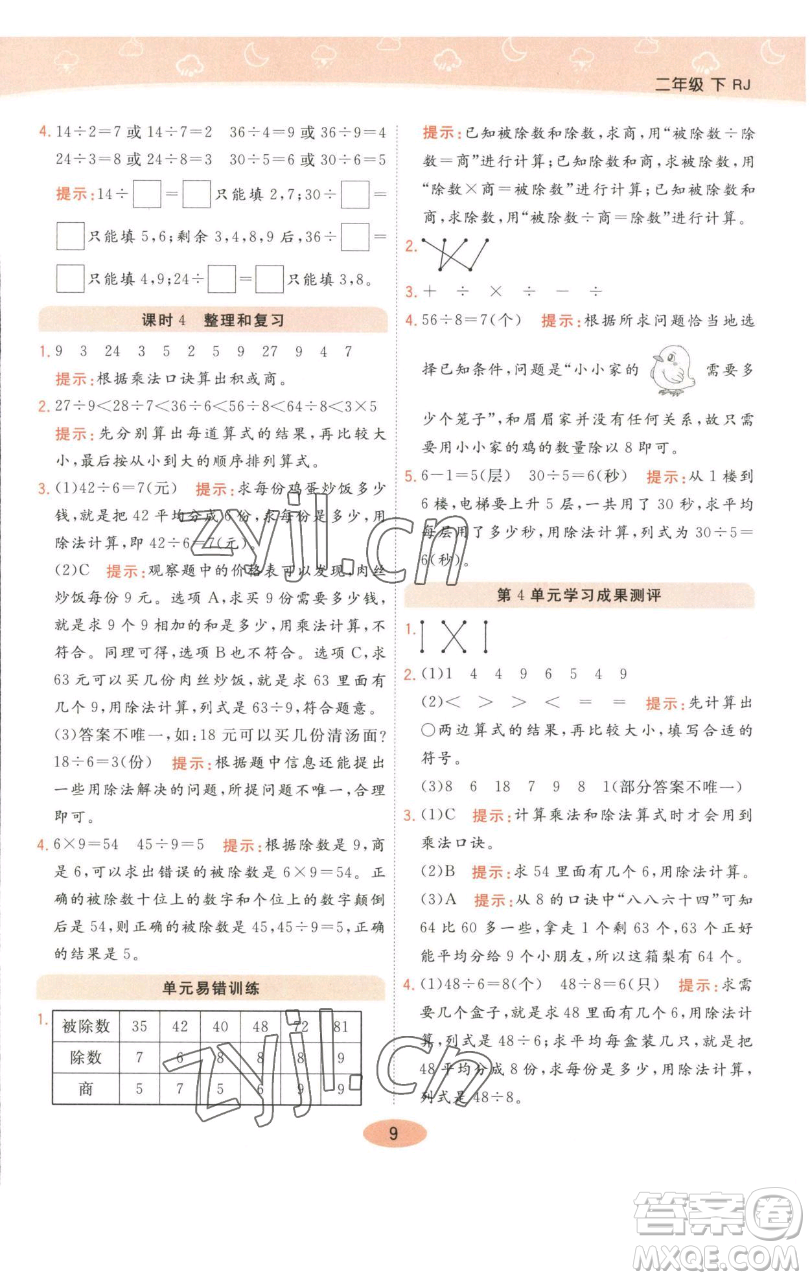 二年级 下 RJ
4. 14÷2=7 或 14÷7=2 36÷4=9 或 36÷9=4
24÷3=8 或 24÷8=3 30÷5=6 或 30÷6=5
提示:14÷□=□只能填 2,7;30÷□=
□只能填 5,6;剩余 3,4,8,9 后,36÷□=
□只能填 4,9;24÷□=□只能填 3,8。
课时 4 整理和复习
1. 9 3 24 3 5 2 5 9 27 9 4 7
提示:根据乘法口诀算出积或商。
2. 27÷9<28÷7<36÷6<56÷8<64÷8<3×5
提示:先分别算出每道算式的结果,再比较大
小,最后按从小到大的顺序排列算式。
3. (1)42÷6=7(元) 提示:求每份鸡蛋炒饭多少
钱,就是把 42 平均分成 6 份,求每份是多少,用
除法计算,即 42÷6=7(元)。
(2)C 提示:观察题中的价格表可以发现,肉丝
炒饭每份 9 元。选项 A,求买 9 份需要多少钱,
就是求 9 个 9 相加的和是多少,用乘法计算,不
符合。同理可得,选项 B 也不符合。选项 C,求
63 元可以买几份肉丝炒饭,就是求 63 里面有
几个 9,用除法计算,列式为 63÷9,符合题意。
(3)答案不唯一,如:18 元可以买几份清汤面?
18÷6=3(份) 提示:根据题中信息还能提出
一些用除法解决的问题,所提问题有意义、合理
即可。
4. 6×9=54 45÷9=5 提示:根据除数是 9,商
是 6,可以求出错误的被除数是 6×9=54。正
确的被除数十位上的数字和个位上的数字颠倒
后是 54,则正确的被除数是 45,45÷9=5,正确
的结果是 5。
单元易错训练
1. 被除数 35 42 40 48 72 81
除数 7 6 8 8 8 9
商 5 7 5 6 9 9
提示:已知被除数和除数,求商,用“被除数÷除
数=商”进行计算;已知除数和商,求被除数,用
“除数×商=被除数”进行计算;已知被除数和
商,求除数,用“被除数÷商=除数”进行计算。
2.
3. + ÷ × ÷ − ÷
4. 56÷8=7(个) 提示:根据所求问题恰当地选
择已知条件,问题是“小小家的 需要多
少个笼子”,和眉眉家并没有任何关系,故只需
要用小小家的鸡的数量除以 8 即可。
5. 6−1=5(层) 30÷5=6(秒) 提示:从 1 楼到
6 楼,电梯要上升 5 层,一共用了 30 秒,求平均
每层用了多少秒,用除法计算,列式为 30÷5=
6(秒)。
第 4 单元学习成果测评
1.
2. (1)1 4 4 9 6 5 4 9
(2)< > > < = = 提示:先计算出
○两边算式的结果,再比较大小,填写合适的
符号。
(3)8 6 18 7 9 8 1(部分答案不唯一)
3. (1)C 提示:计算乘法和除法算式时才会用到
乘法口诀。
(2)B 提示:求 54 里面有几个 6,用除法计算。
(3)A 提示:从 8 的口诀中“八八六十四”可知
64 比 60 多一些,拿走 1 个剩 63 个,63 个正好
能平均分给 9 个小朋友,所以这箱梨有可能是
64 个。
4. (1)48÷6=8(个) 48÷8=6(只) 提示:求需
要几个盒子,就是求 48 里面有几个 6,用除法计
算,列式是 48÷6;求平均每盒装几只,就是把
48 平均分成 8 份,求每份是多少,用除法计算,
列式是 48÷8。
9
zyjl.cn
zyjl.cn
答案圈
MXQE.COM